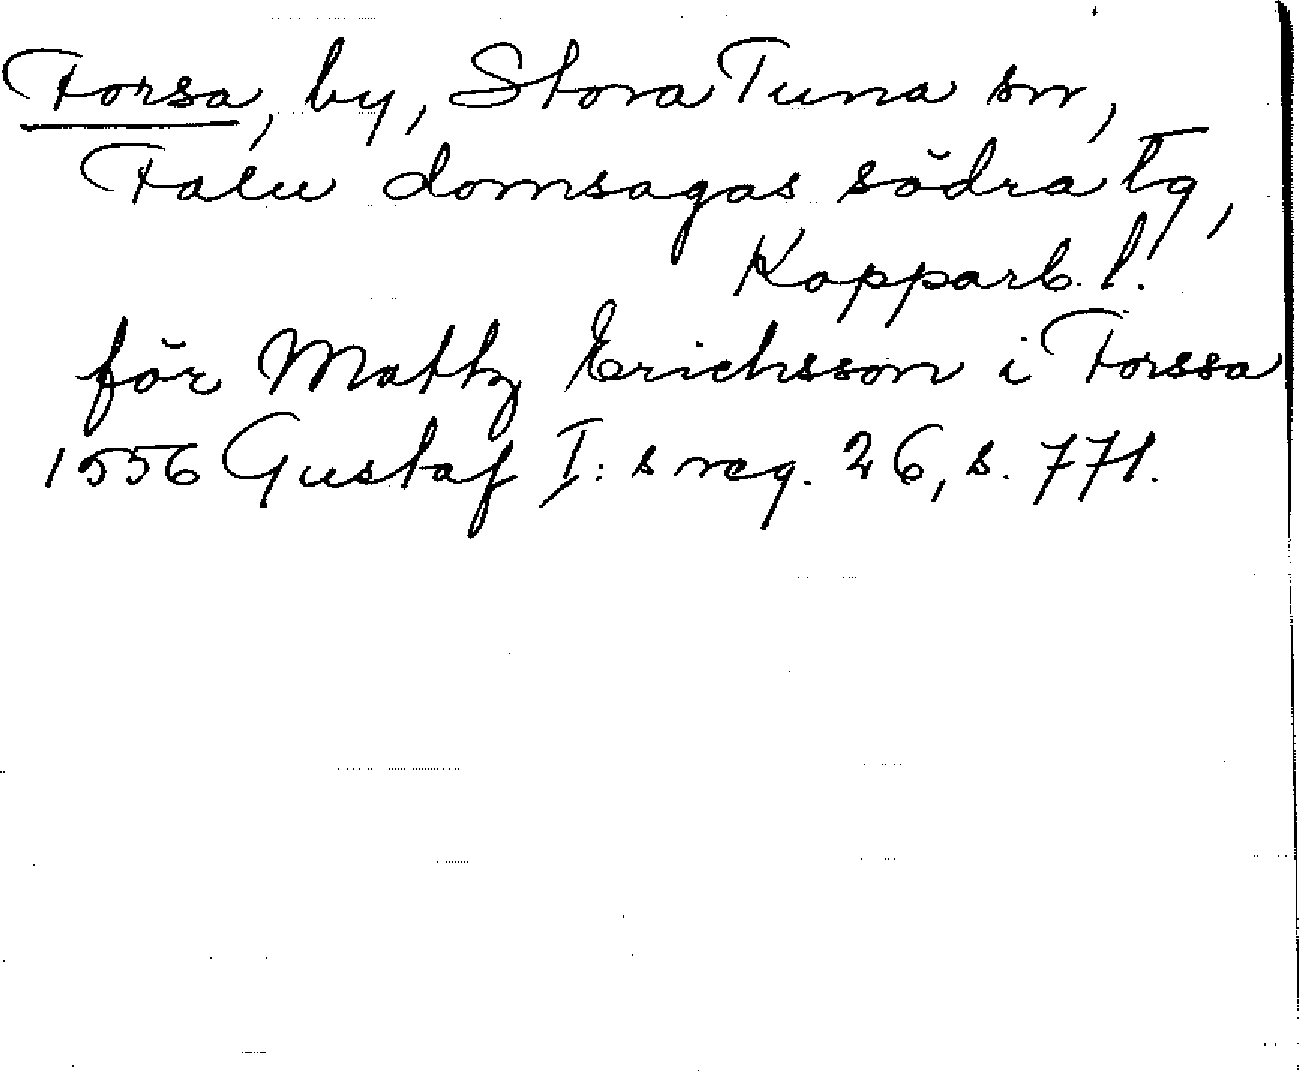 Forsa, by, Stora Tuna sn,
Falu domsagas södra tg,
Kopparb. l.
för Mattz Erichsson i Forssa
1556 Gustaf I: s reg. 26, s. 771.